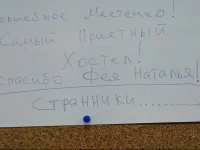 Волшебное Местечко!
Самый Приятный
Хостел!
Спасибо Фея Наталья!
Странники........